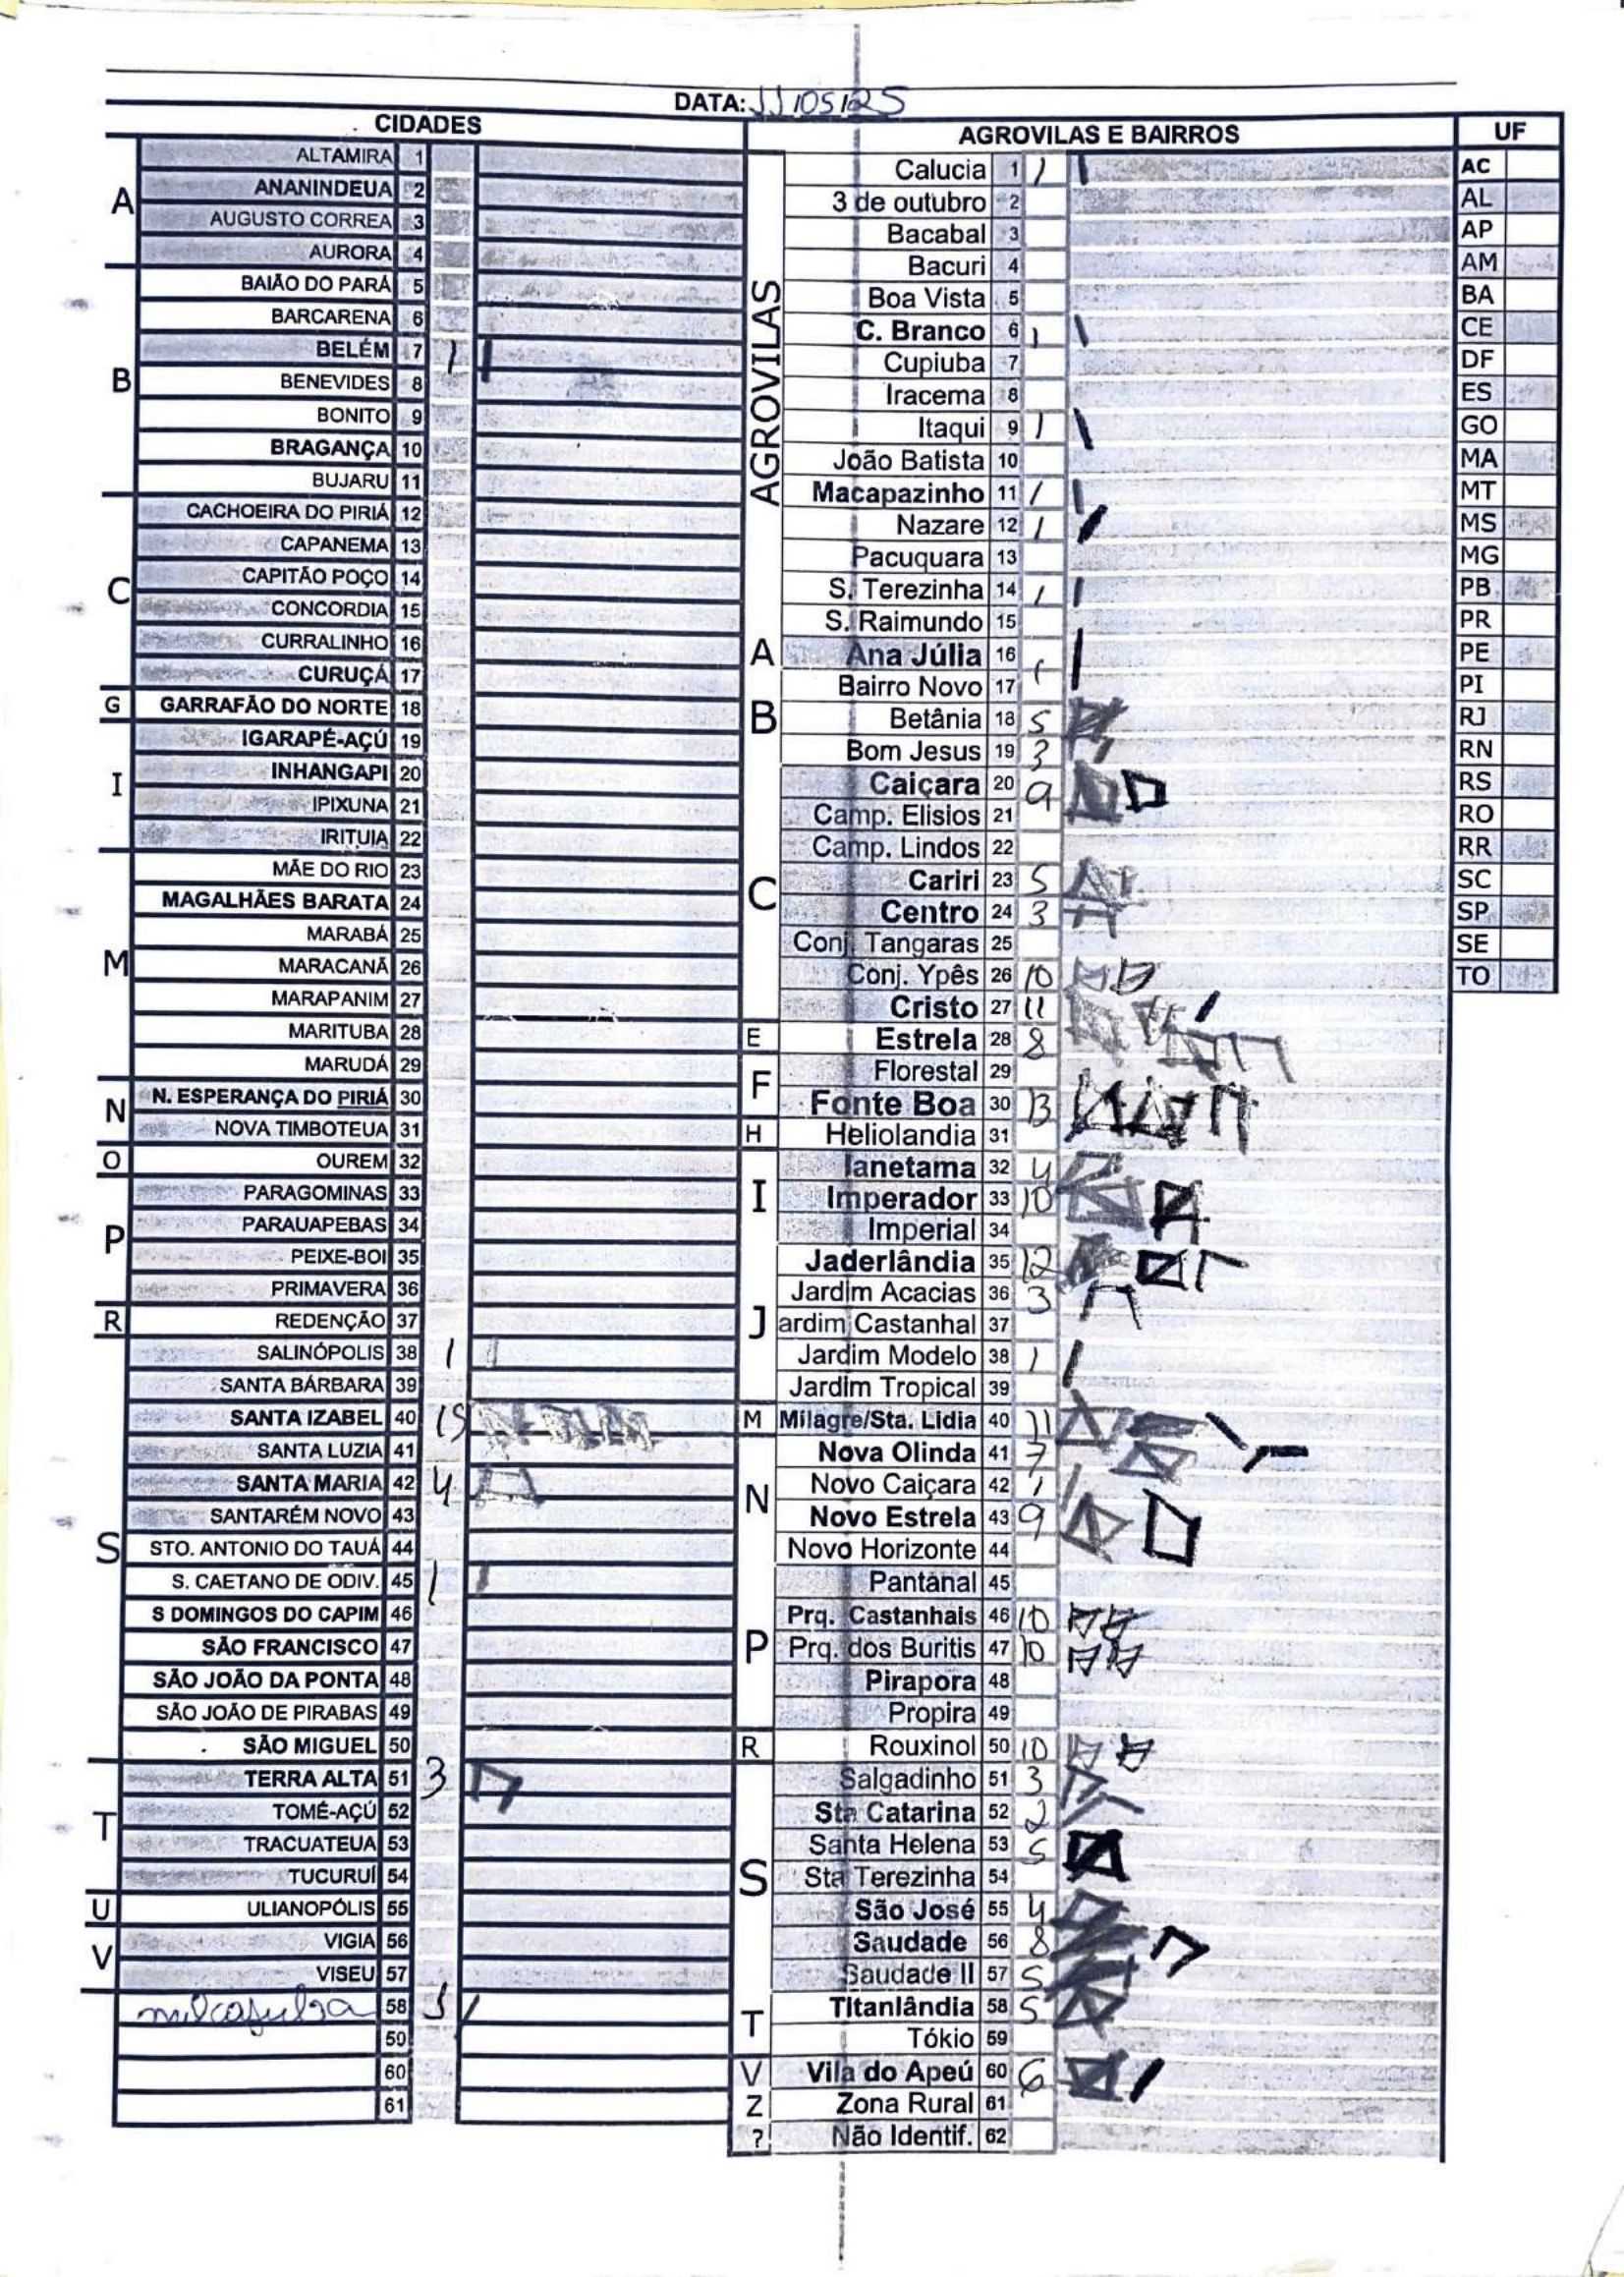 DATA: 11/05/25
CIDADES
A
ALTAMIRA 1
ANANINDEUA 2
AUGUSTO CORREA 3
AURORA 4
B
BAIÃO DO PARÁ 5
BARCARENA 6
BELÉM 7 1
BENEVIDES 8
BONITO 9
BRAGANÇA 10
BUJARU 11
C
CACHOEIRA DO PIRIÁ 12
CAPANEMA 13
CAPITÃO POÇO 14
CONCORDIA 15
CURRALINHO 16
CURUÇÁ 17
G
GARRAFÃO DO NORTE 18
I
IGARAPÉ-AÇÚ 19
INHANGAPI 20
IPIXUNA 21
IRITUIA 22
M
MÃE DO RIO 23
MAGALHÃES BARATA 24
MARABÁ 25
MARACANÃ 26
MARAPANIM 27
MARITUBA 28
MARUDÁ 29
N
N. ESPERANÇA DO PIRIÁ 30
NOVA TIMBOTEUA 31
O
OUREM 32
P
PARAGOMINAS 33
PARAUAPEBAS 34
PEIXE-BOI 35
PRIMAVERA 36
R
REDENÇÃO 37
S
SALINÓPOLIS 38 1
SANTA BÁRBARA 39
SANTA IZABEL 40 15
SANTA LUZIA 41
SANTA MARIA 42 4
SANTARÉM NOVO 43
STO. ANTONIO DO TAUÁ 44
S. CAETANO DE ODIV. 45 1
S DOMINGOS DO CAPIM 46
SÃO FRANCISCO 47
SÃO JOÃO DA PONTA 48
SÃO JOÃO DE PIRABAS 49
SÃO MIGUEL 50
T
TERRA ALTA 51 3
TOMÉ-AÇÚ 52
TRACUATEUA 53
TUCURUÍ 54
U
ULIANOPÓLIS 55
V
VIGIA 56
VISEU 57
58 1
59
60
61
AGROVILAS E BAIRROS
AGROVILAS
Calucia 1 1
3 de outubro 2
Bacabal 3
Bacuri 4
Boa Vista 5
C. Branco 6 1
Cupiuba 7
Iracema 8
Itaqui 9 1
João Batista 10
Macapazinho 11 1
Nazare 12 1
Pacuquara 13
S. Terezinha 14 1
S. Raimundo 15
A
Ana Júlia 16
Bairro Novo 17 1
B
Betânia 18 5
Bom Jesus 19 3
C
Caiçara 20 9
Camp. Elisios 21
Camp. Lindos 22
Cariri 23 5
Centro 24 3
Conj. Tangaras 25
Conj. Ypês 26 10
Cristo 27 11
E
Estrela 28 8
F
Florestal 29
Fonte Boa 30 13
H
Heliolandia 31
I
Ianetama 32 4
Imperador 33 10
Imperial 34
J
Jaderlândia 35 12
Jardim Acacias 36 3
ardim Castanhal 37
Jardim Modelo 38 1
Jardim Tropical 39
M
Milagre/Sta. Lidia 40 11
N
Nova Olinda 41 7
Novo Caiçara 42 1
Novo Estrela 43 9
Novo Horizonte 44
P
Pantanal 45
Prq. Castanhais 46 10
Prq. dos Buritis 47 10
Pirapora 48
Propira 49
R
Rouxinol 50 10
S
Salgadinho 51 3
Sta Catarina 52 2
Santa Helena 53 5
Sta Terezinha 54
São José 55 4
Saudade 56 8
Saudade II 57 5
T
Titanlândia 58 5
Tókio 59
V
Vila do Apeú 60 6
Z
Zona Rural 61
?
Não Identif. 62
UF
AC
AL
AP
AM
BA
CE
DF
ES
GO
MA
MT
MS
MG
PB
PR
PE
PI
RJ
RN
RS
RO
RR
SC
SP
SE
TO